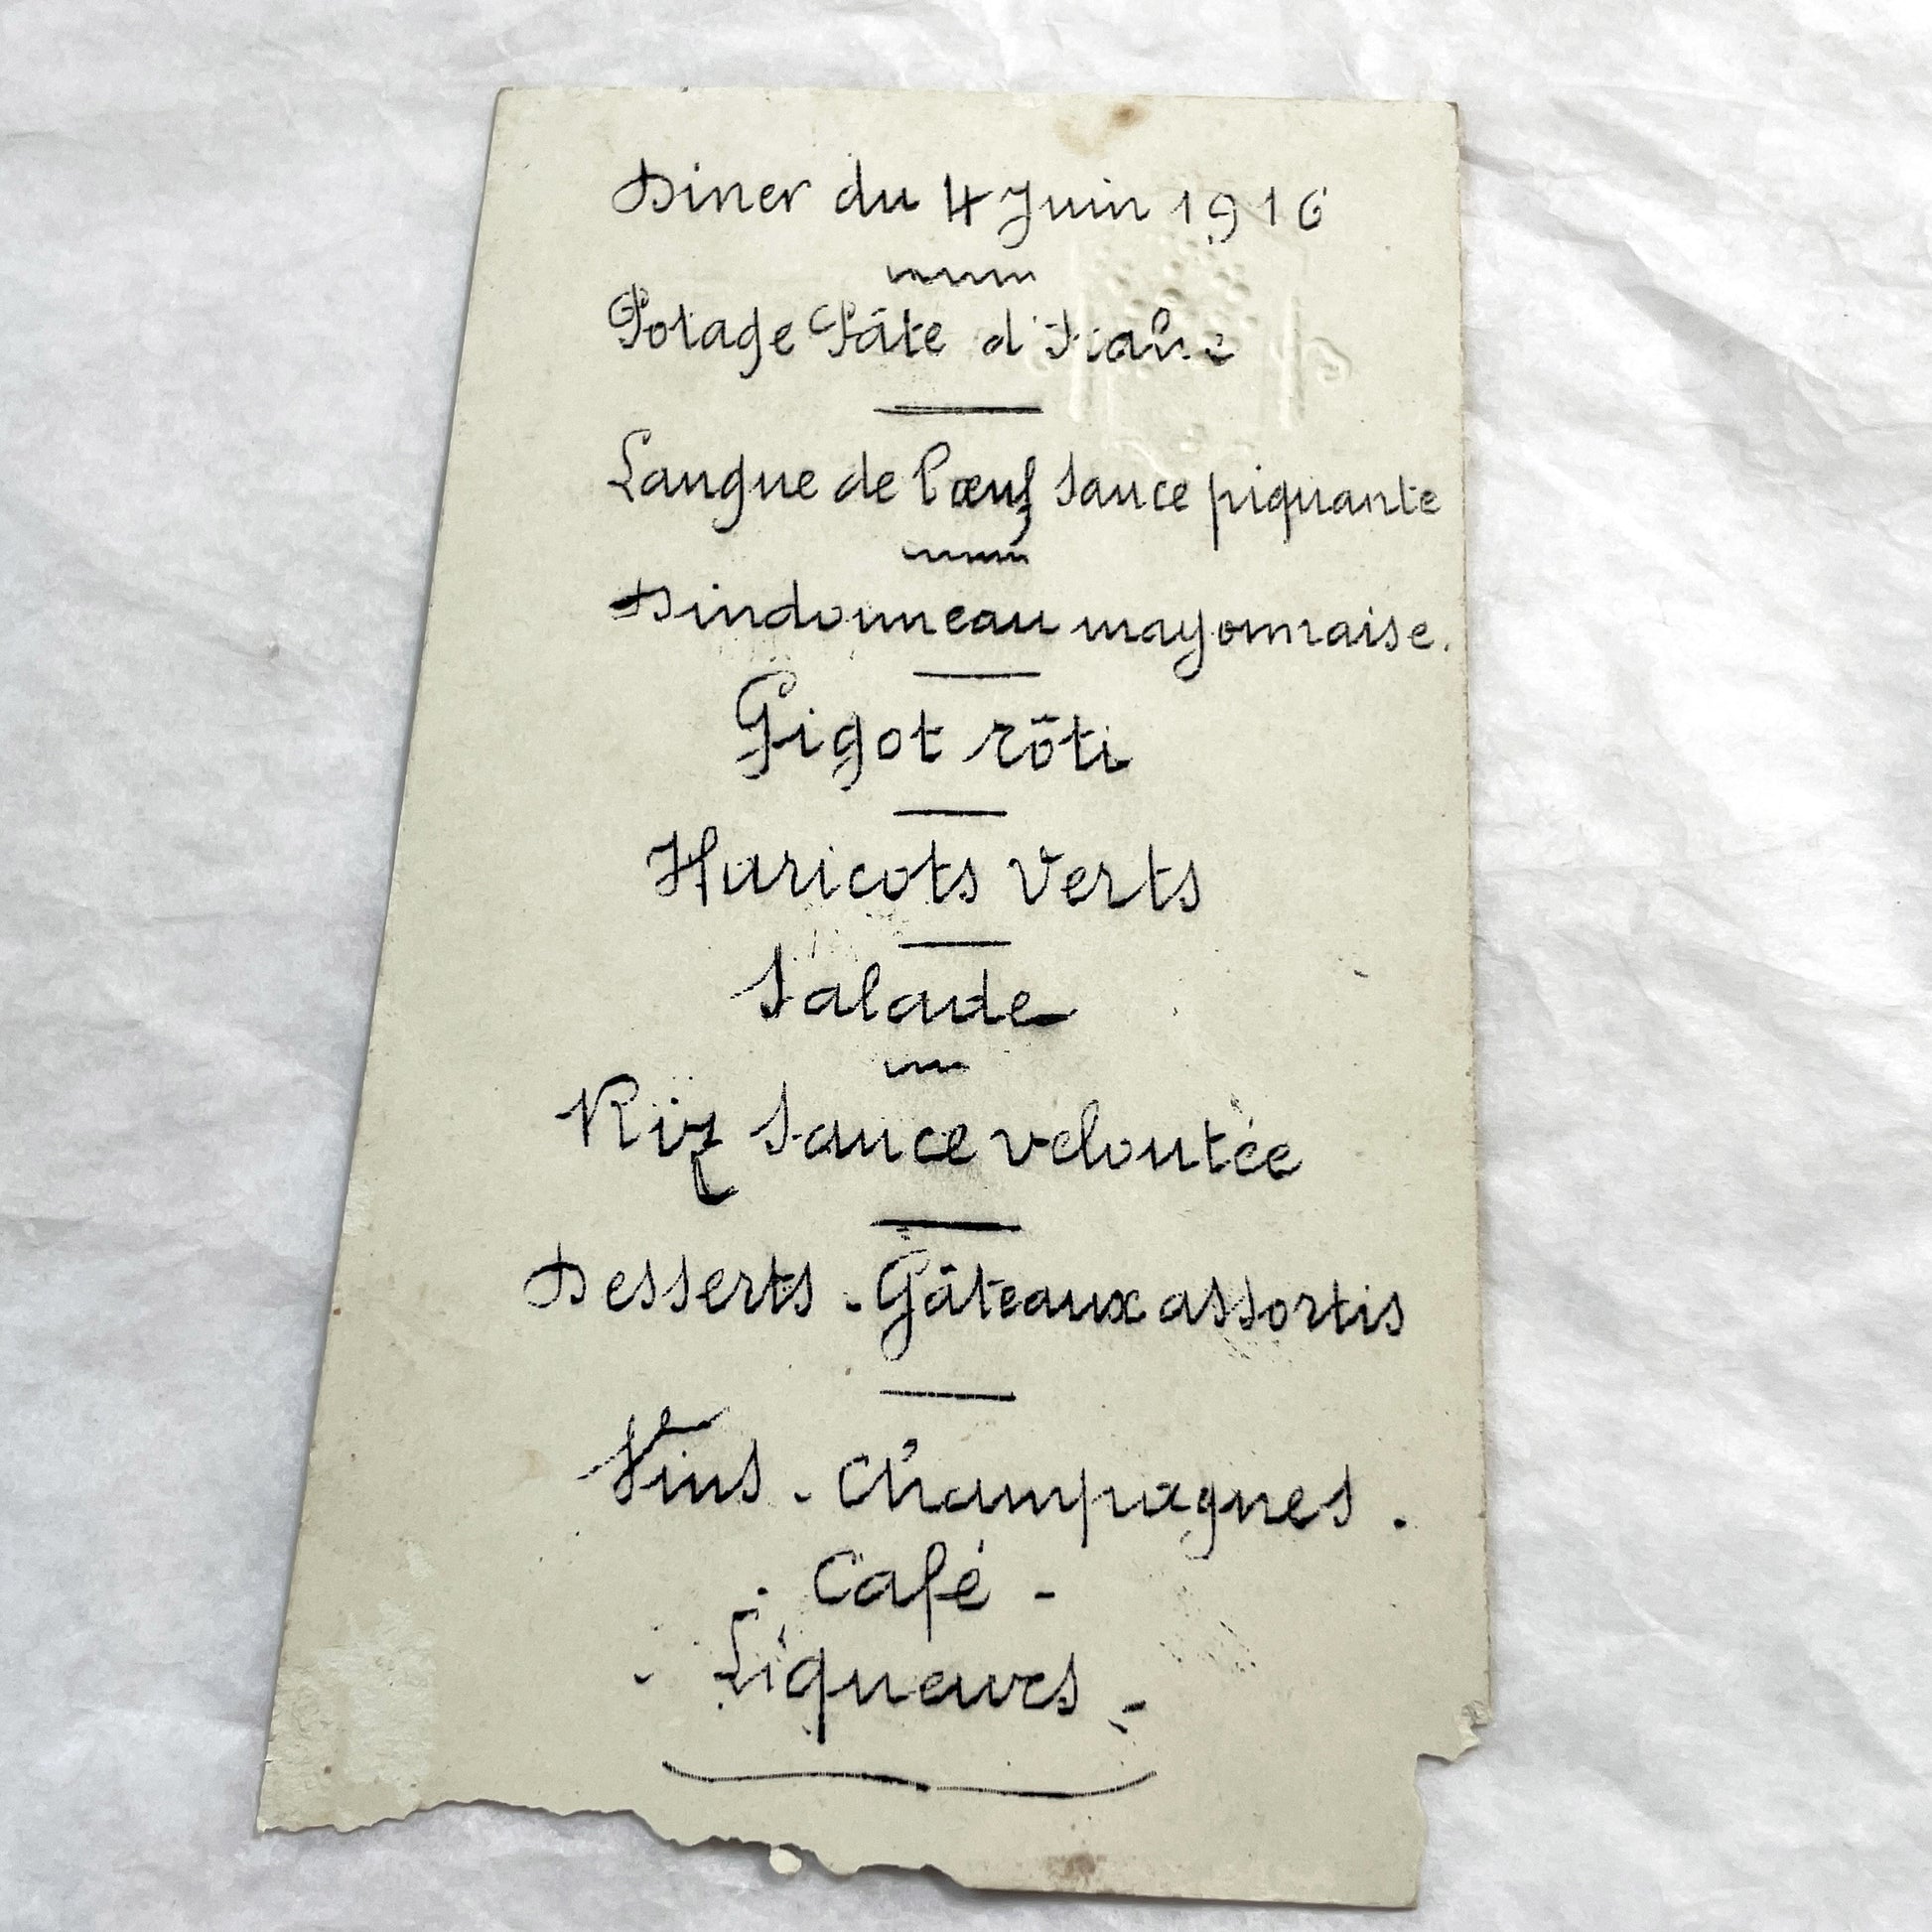 Diner du 4 Juin 1916
Potage Pâte d'Italie
Langue de bœuf sauce piquante
Dindonneau mayonnaise.
Gigot rôti
Haricots verts
Salade
Riz sauce veloutée
Desserts - Gâteaux assortis
Vins - Champagnes.
- Café -
- Liqueurs -